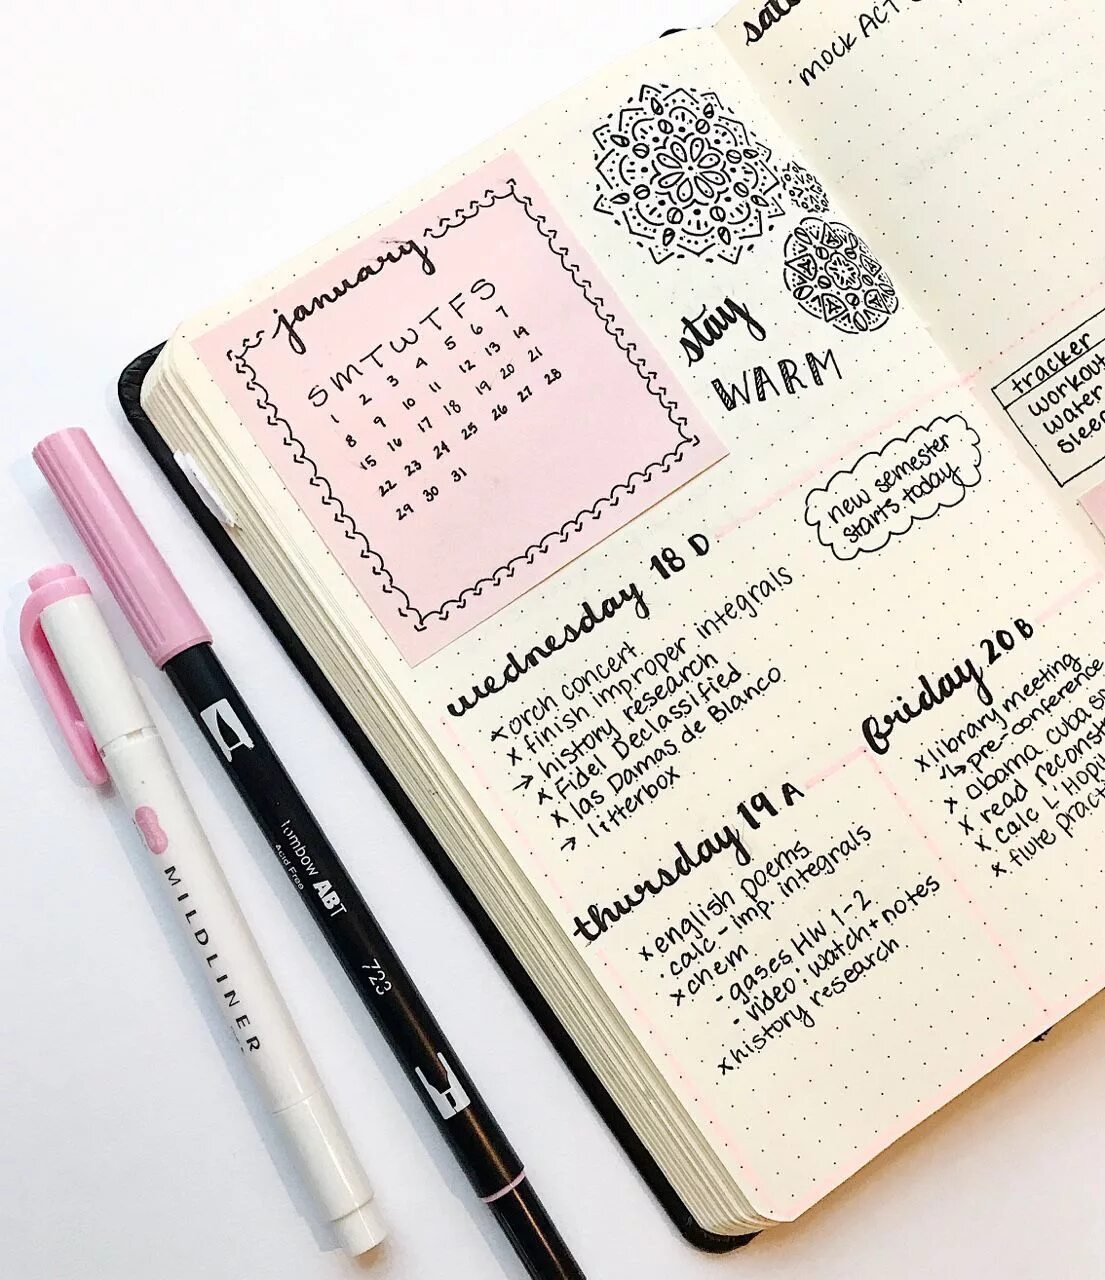 january
S M T W T F S
1 2 3 4 5 6 7
8 9 10 11 12 13 14
15 16 17 18 19 20 21
22 23 24 25 26 27 28
29 30 31
stay
WARM
new semester
starts today
wednesday 18 D
x orch concert
x finish improper integrals
→ history research
x Fidel Declassified
x las Damas de Blanco
→ litterbox
thursday 19 A
x english poems
· calc - imp. integrals
x chem
- gases HW 1-2
- video: watch + notes
x history research
friday 20 B
x library meeting
↳ pre-conference
x obama cuba
x read
x calc L'Hopi
x flute
mock ACT
tracker
workout
water
sleep
MILDLINER
Tombow ABT
Acid Free
723